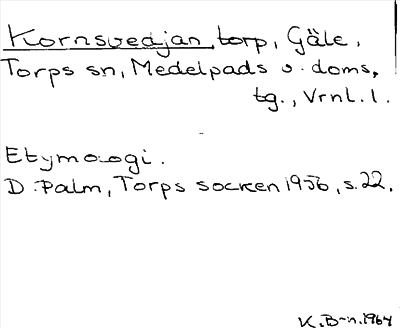 Kornsvedjan, torp, Gäle,
Torps sn, Medelpads v. doms.
tg., Vrnl. 1.
Etymologi.
D. Palm, Torps socken 1956, s. 22.
K. B-n. 1964